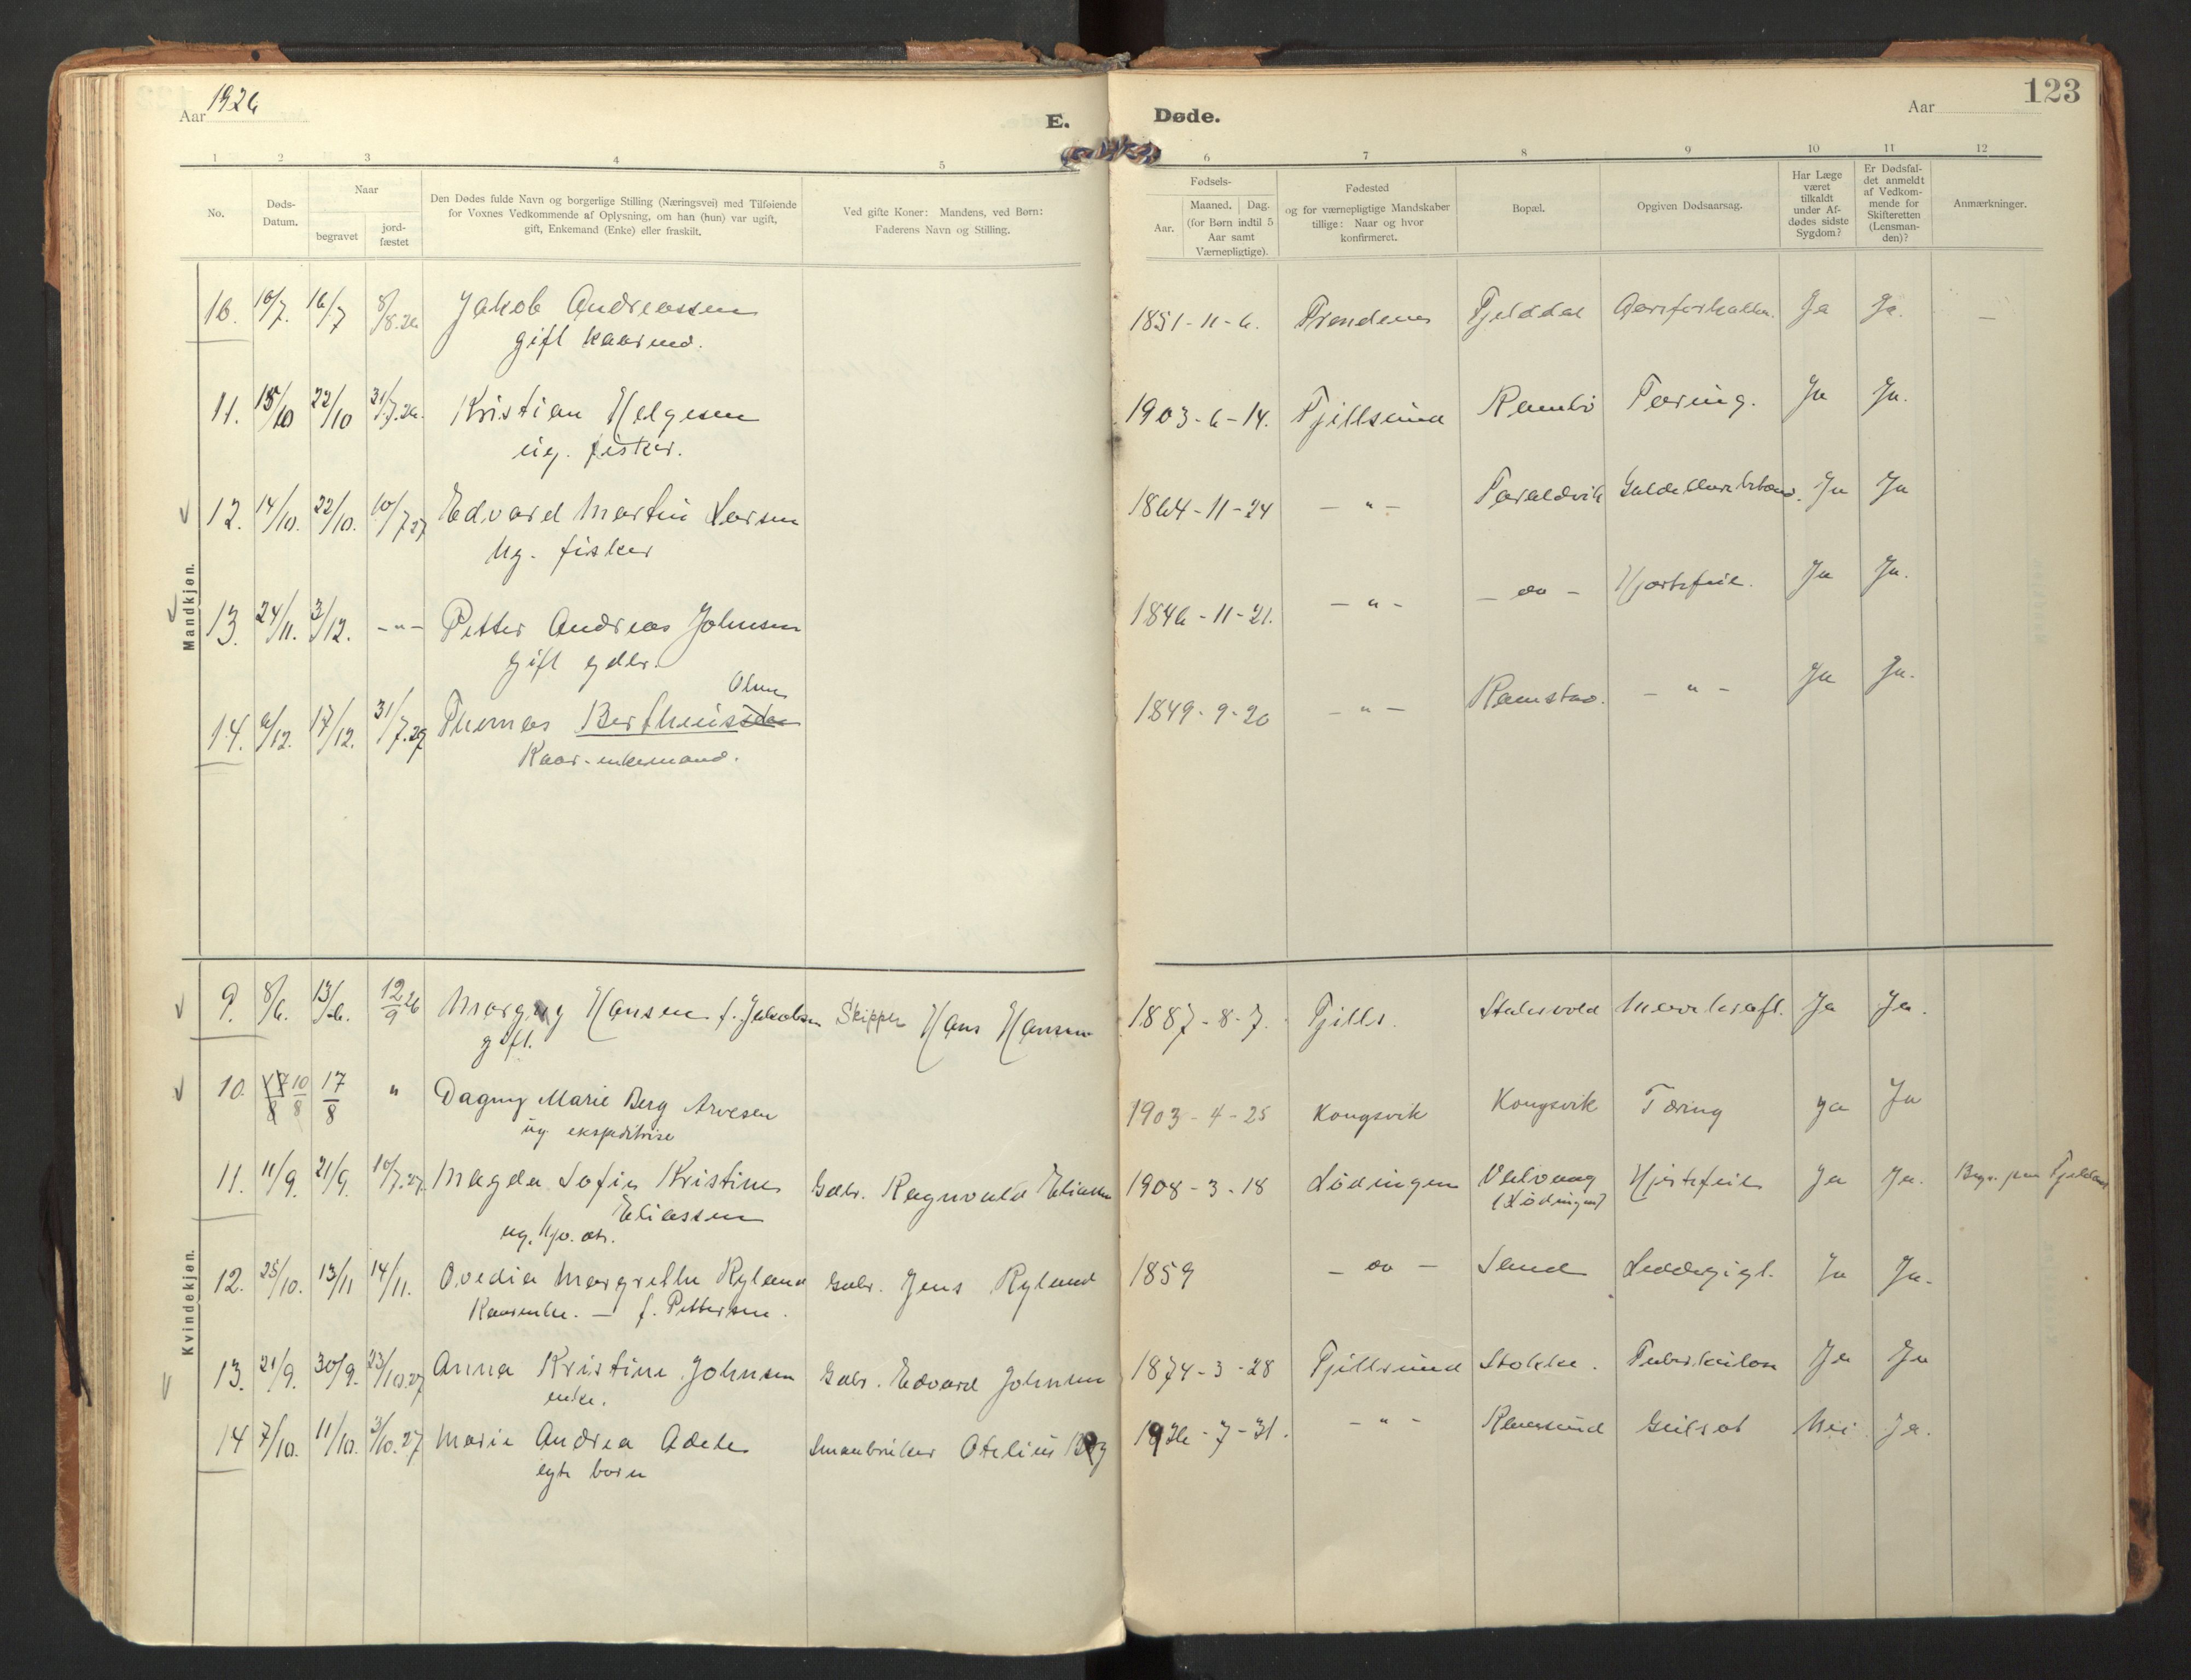 Aar 1926
E.
Døde.
Aar
123
1 2 3 4 5 6 7 8 9 10 11 12
No.
Døds-
Datum.
Naar
begravet
jord-
fæstet
Den Dødes fulde Navn og borgerlige Stilling (Næringsvei) med Tilføiende
for Voxnes Vedkommende af Oplysning, om han (hun) var ugift,
gift, Enkemand (Enke) eller fraskilt.
Ved gifte Koner: Mandens, ved Børn:
Faderens Navn og Stilling.
Fødsels-
Aar.
Maaned. Dag.
(for Børn indtil 5
Aar samt
Værnepligtige).
Fødested
og for værnepligtige Mandskaber
tillige: Naar og hvor
konfirmeret.
Bopæl.
Opgiven Dødsaarsag.
Har Læge
været
tilkaldt
under Af-
dødes sidste
Sygdom?
Er Dødsfal-
det anmeldt
af Vedkom-
mende for
Skifteretten
(Lensman-
den)?
Anmærkninger.
Mandkjøn.
10. 10/7. 16/7 8/8.26 Jakob Andreassen 1851-11-6. Trondenes Fjelddal Aareforkalkn. Ja Ja. —
gift kaarmd.
11. 15/10 22/10 31/7.26. Kristian Helgesen 1903-6-14. Fjellsund Rambø Tæring. Ja Ja.
ug. fisker.
12. 14/10. 22/10. 10/7 27 Edvard Martin Larsen 1864-11-24 — " — Taraldvik Ja Ja
Ug. fisker
13. 24/11. 3/12. -"- Petter Andreas Johnsen 1846-11-21. — " — — do — Hjertefeil. Ja Ja.
gift gdbr.
Olsen
14. 6/12. 17/12. 31/7.27 Thomas Bertheussen 1849-9-20 — " — Ramstad. — " — Ja Ja.
Kaar-enkemand.
Kvindekjøn.
9. 8/6. 13/6. 12/9 26 Margny Hansen f. Jakobsen Skipper Hans Hansen 1887-8-7. Fjells. Stakesvold Ja Ja.
gift.
10. 17/8 10/8 17/8 " Dagny Marie Berg Arvesen 1903-4-25 Kongsvik Kongsvik Tæring Ja Ja
ug ekspeditrise
11. 11/9. 21/9. 10/7.27. Magda Sofie Kristine Gdbr. Ragnvald Eliassen 1908-3-18 Lødingen Hjertefeil Ja Ja. Begr. paa Fjelddal
Eliassen (Lødingen)
ug. hjv. dtr.
12. 25/10. 13/11 14/11. Ovedia Margrethe Ryland Gdbr. Jens Ryland 1859 — do — Sand Leddegigt. Ja Ja.
Kaarenke. — f. Pettersen.
13. 21/9. 30/9. 23/10.27 Anna Kristine Johnsen Gdbr. Edvard Johnsen 1874-3-28 Fjellsund Stokke. Tuberkulose Ja Ja
enke.
14 7/10. 11/10. 3/10.27 Marie Andrea Adele Smaabruker Otelius Berg 1926-7-31. — " — Ramsund Gulsot Nei Ja.
egte barn